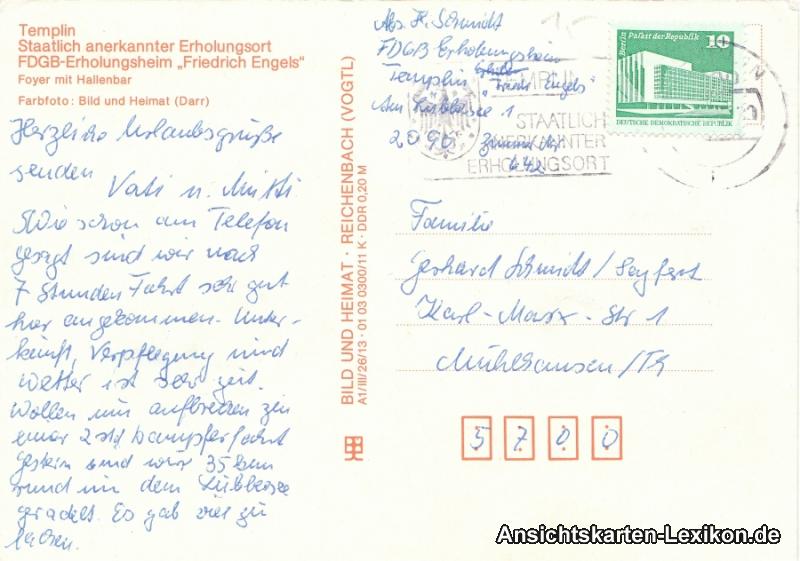 Templin
Staatlich anerkannter Erholungsort
FDGB-Erholungsheim „Friedrich Engels"
Foyer mit Hallenbar
Farbfoto: Bild und Heimat (Darr)
Herzliche Urlaubsgrüße
senden
Vati u. Mutti
Wie schon am Telefon
gesagt sind wir nach
7 Stunden Fahrt sehr gut
hier angekommen. Unter-
kunft, Verpflegung und
Wetter ist sehr gut.
Wollen nun aufbrechen zu
einer 2 std Dampferfahrt
Gestern sind wir 35 km
rund um den Lübbesee
geradelt. Es gab viel zu
lachen.
BILD UND HEIMAT · REICHENBACH (VOGTL)
A1/III/26/13 · 01 03 0300/11 K · DDR 0,20 M
Abs. H. Schmidt
FDGB Erholungsheim
Templin
"Friedr. Engels"
Am Lübbesee 1
2090 Zimmer Nr
442
TEMPLIN
STAATLICH
ANERKANNTER
ERHOLUNGSORT
Berlin Palast der Republik 10
DEUTSCHE DEMOKRATISCHE REPUBLIK
Familie
Gerhard Schmidt/Seyfert
Karl-Marx-Str 1
Mühlhausen/Th
5700
Ansichtskarten-Lexikon.de